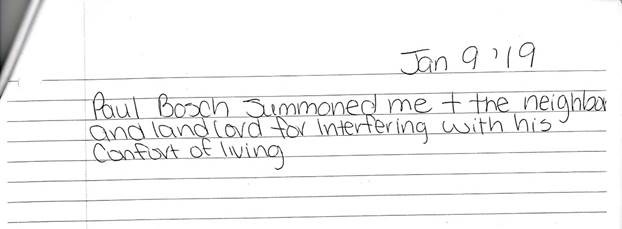 Jan 9 '19
Paul Bosch Summoned me + the neighbor
and landlord for Interfering with his
Confort of living